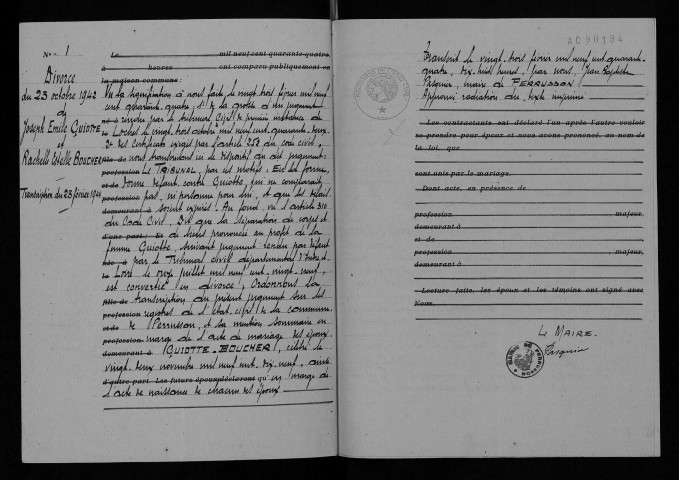 No 1
Divorce
du 23 octobre 1942
de
Joseph Emile GUIOTTE
et
Rachelle Estelle BOUCHER
Transcription du 23 février 1944
Le mil neuf cent quarante-quatre
à heures ont comparu publiquement en
la maison commune :
Vu la signification à nous faite le vingt trois février mil neuf
cent quarante quatre : 1° de la grosse d'un jugement
rendu par le tribunal civil de première instance de
Loches le vingt trois octobre mil neuf cent quarante deux
2° des certificats exigés par l'article 252 du code civil,
nous transcrivons ici le dispositif du dit jugement :
Le TRIBUNAL, par ces motifs : En la forme,
Donne défaut contre Guiotte, qui ne comparaît
pas, ni personne pour lui, et que les délais
soient expirés : Au fond, vu l'article 310
du Code Civil. Dit que la séparation de corps et
de biens prononcée au profit de la
femme Guiotte, suivant jugement rendu par défaut
par le Tribunal civil départemental d'Indre et
Loire le onze juillet mil neuf cent vingt neuf,
est convertie en divorce ; Ordonnons la
transcription du présent jugement sur les
registres de l'état civil de la commune
de Perrusson, et sa mention sommaire en
marge de l'acte de mariage des époux
GUIOTTE-BOUCHER, célébré le
vingt deux novembre mil neuf cent dix neuf, ainsi
d'autre part. Les futurs époux déclarent qu'en marge de
l'acte de naissance de chacun des époux
AC90194
Transcrit le vingt trois février mil neuf cent quarante
quatre, dix huit heures, par nous, Jean Baptiste
Pasquier, maire de PERRUSSON
Approuvé radiation du texte imprimé
Les contractants ont déclaré l'un après l'autre vouloir
se prendre pour époux et nous avons prononcé, au nom de
la loi, que
sont unis par le mariage.
Dont acte, en présence de
profession majeur,
demeurant à
et de
profession majeur,
demeurant à
Lecture faite, les époux et les témoins ont signé avec
Nous.
Le MAIRE.
Pasquier
MAIRIE DE PERRUSSON